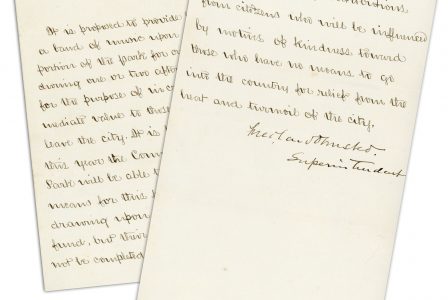 It is proposed to provide
a band of music upon
portion of the park for
during one or two
for the purpose of
mediate value to those
leave the city. It is
this year the
Park will be able
means for this
drawing upon
fund, but their
not be completed
from citizens who will be influenced
by motives of kindness toward
those who have no means to go
into the country for relief from the
heat and turmoil of the city.
Fred. Law Olmsted
Superintendent